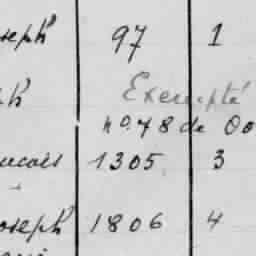 oseph 97 1
ph Exempté
nº. 48 de Do
ucois 1305 3
oseph 1806 4